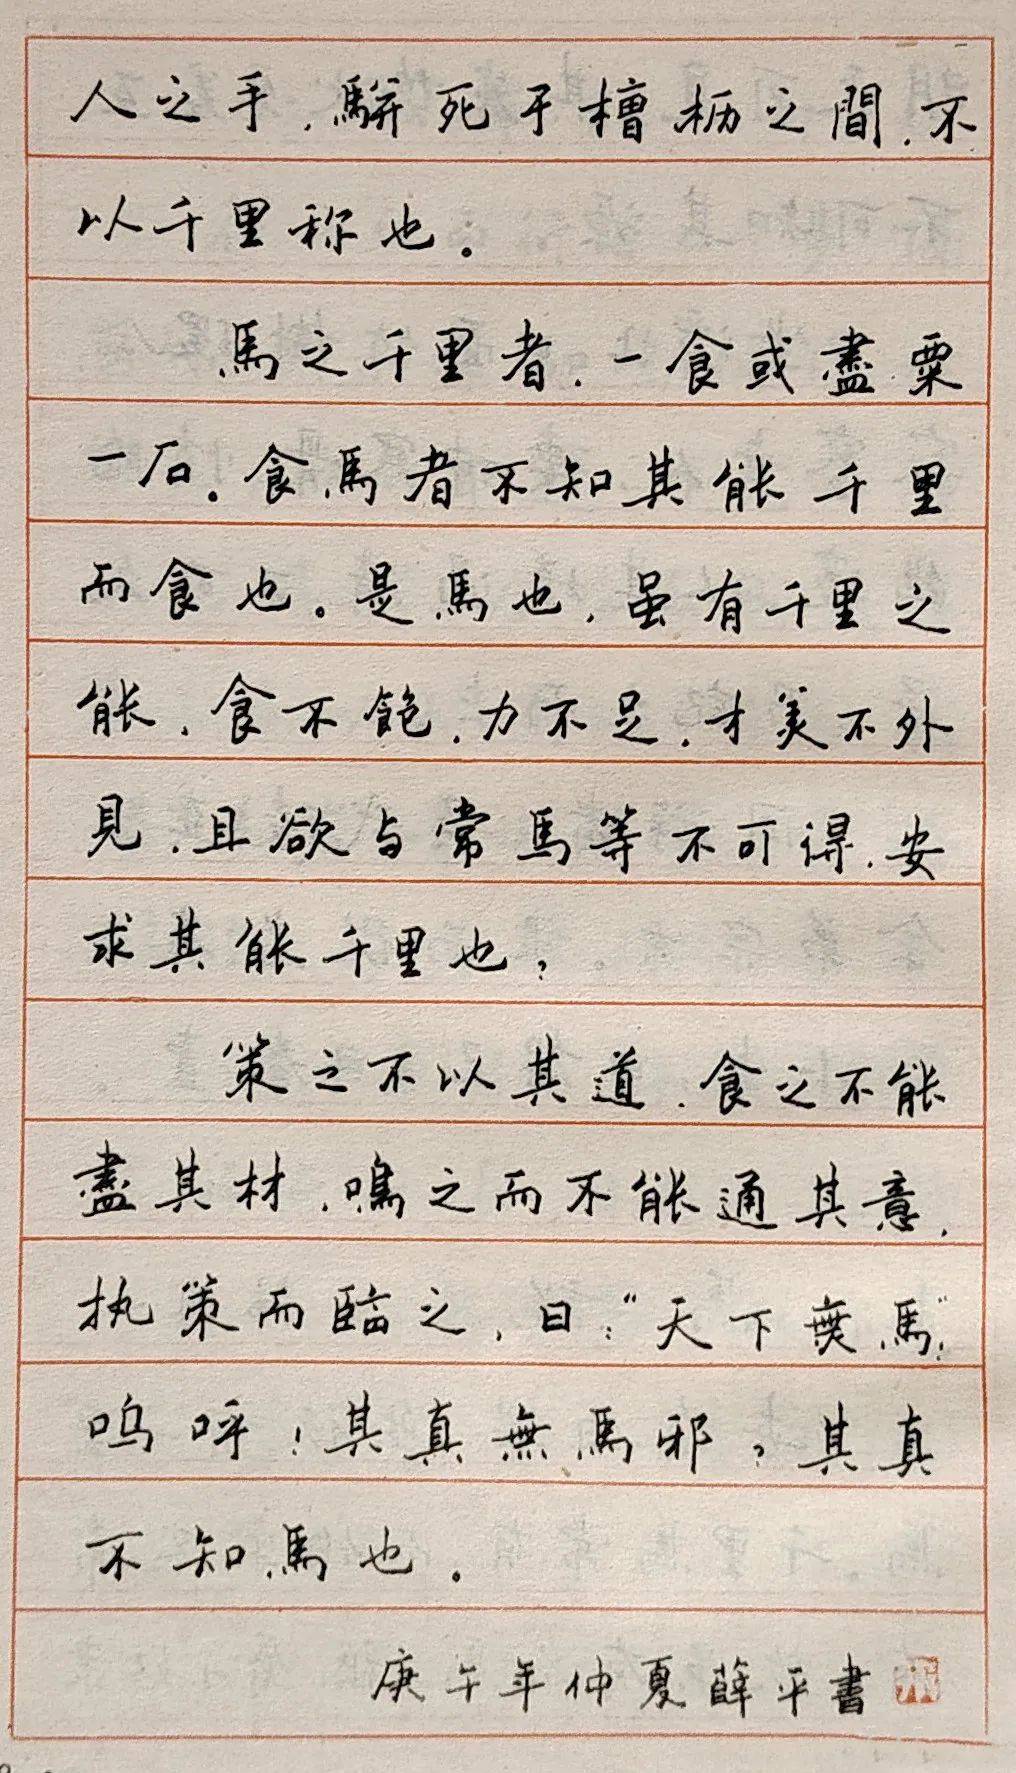 人之手，騈死于槽枥之間，不
以千里称也。
馬之千里者，一食或盡粟
一石。食馬者不知其能千里
而食也。是馬也，虽有千里之
能，食不飽，力不足，才美不外
見，且欲与常馬等不可得，安
求其能千里也？
策之不以其道，食之不能
盡其材，鳴之而不能通其意，
执策而臨之，曰：“天下無馬”！
呜呼！其真無馬邪？其真
不知馬也．
庚午年仲夏薛平書